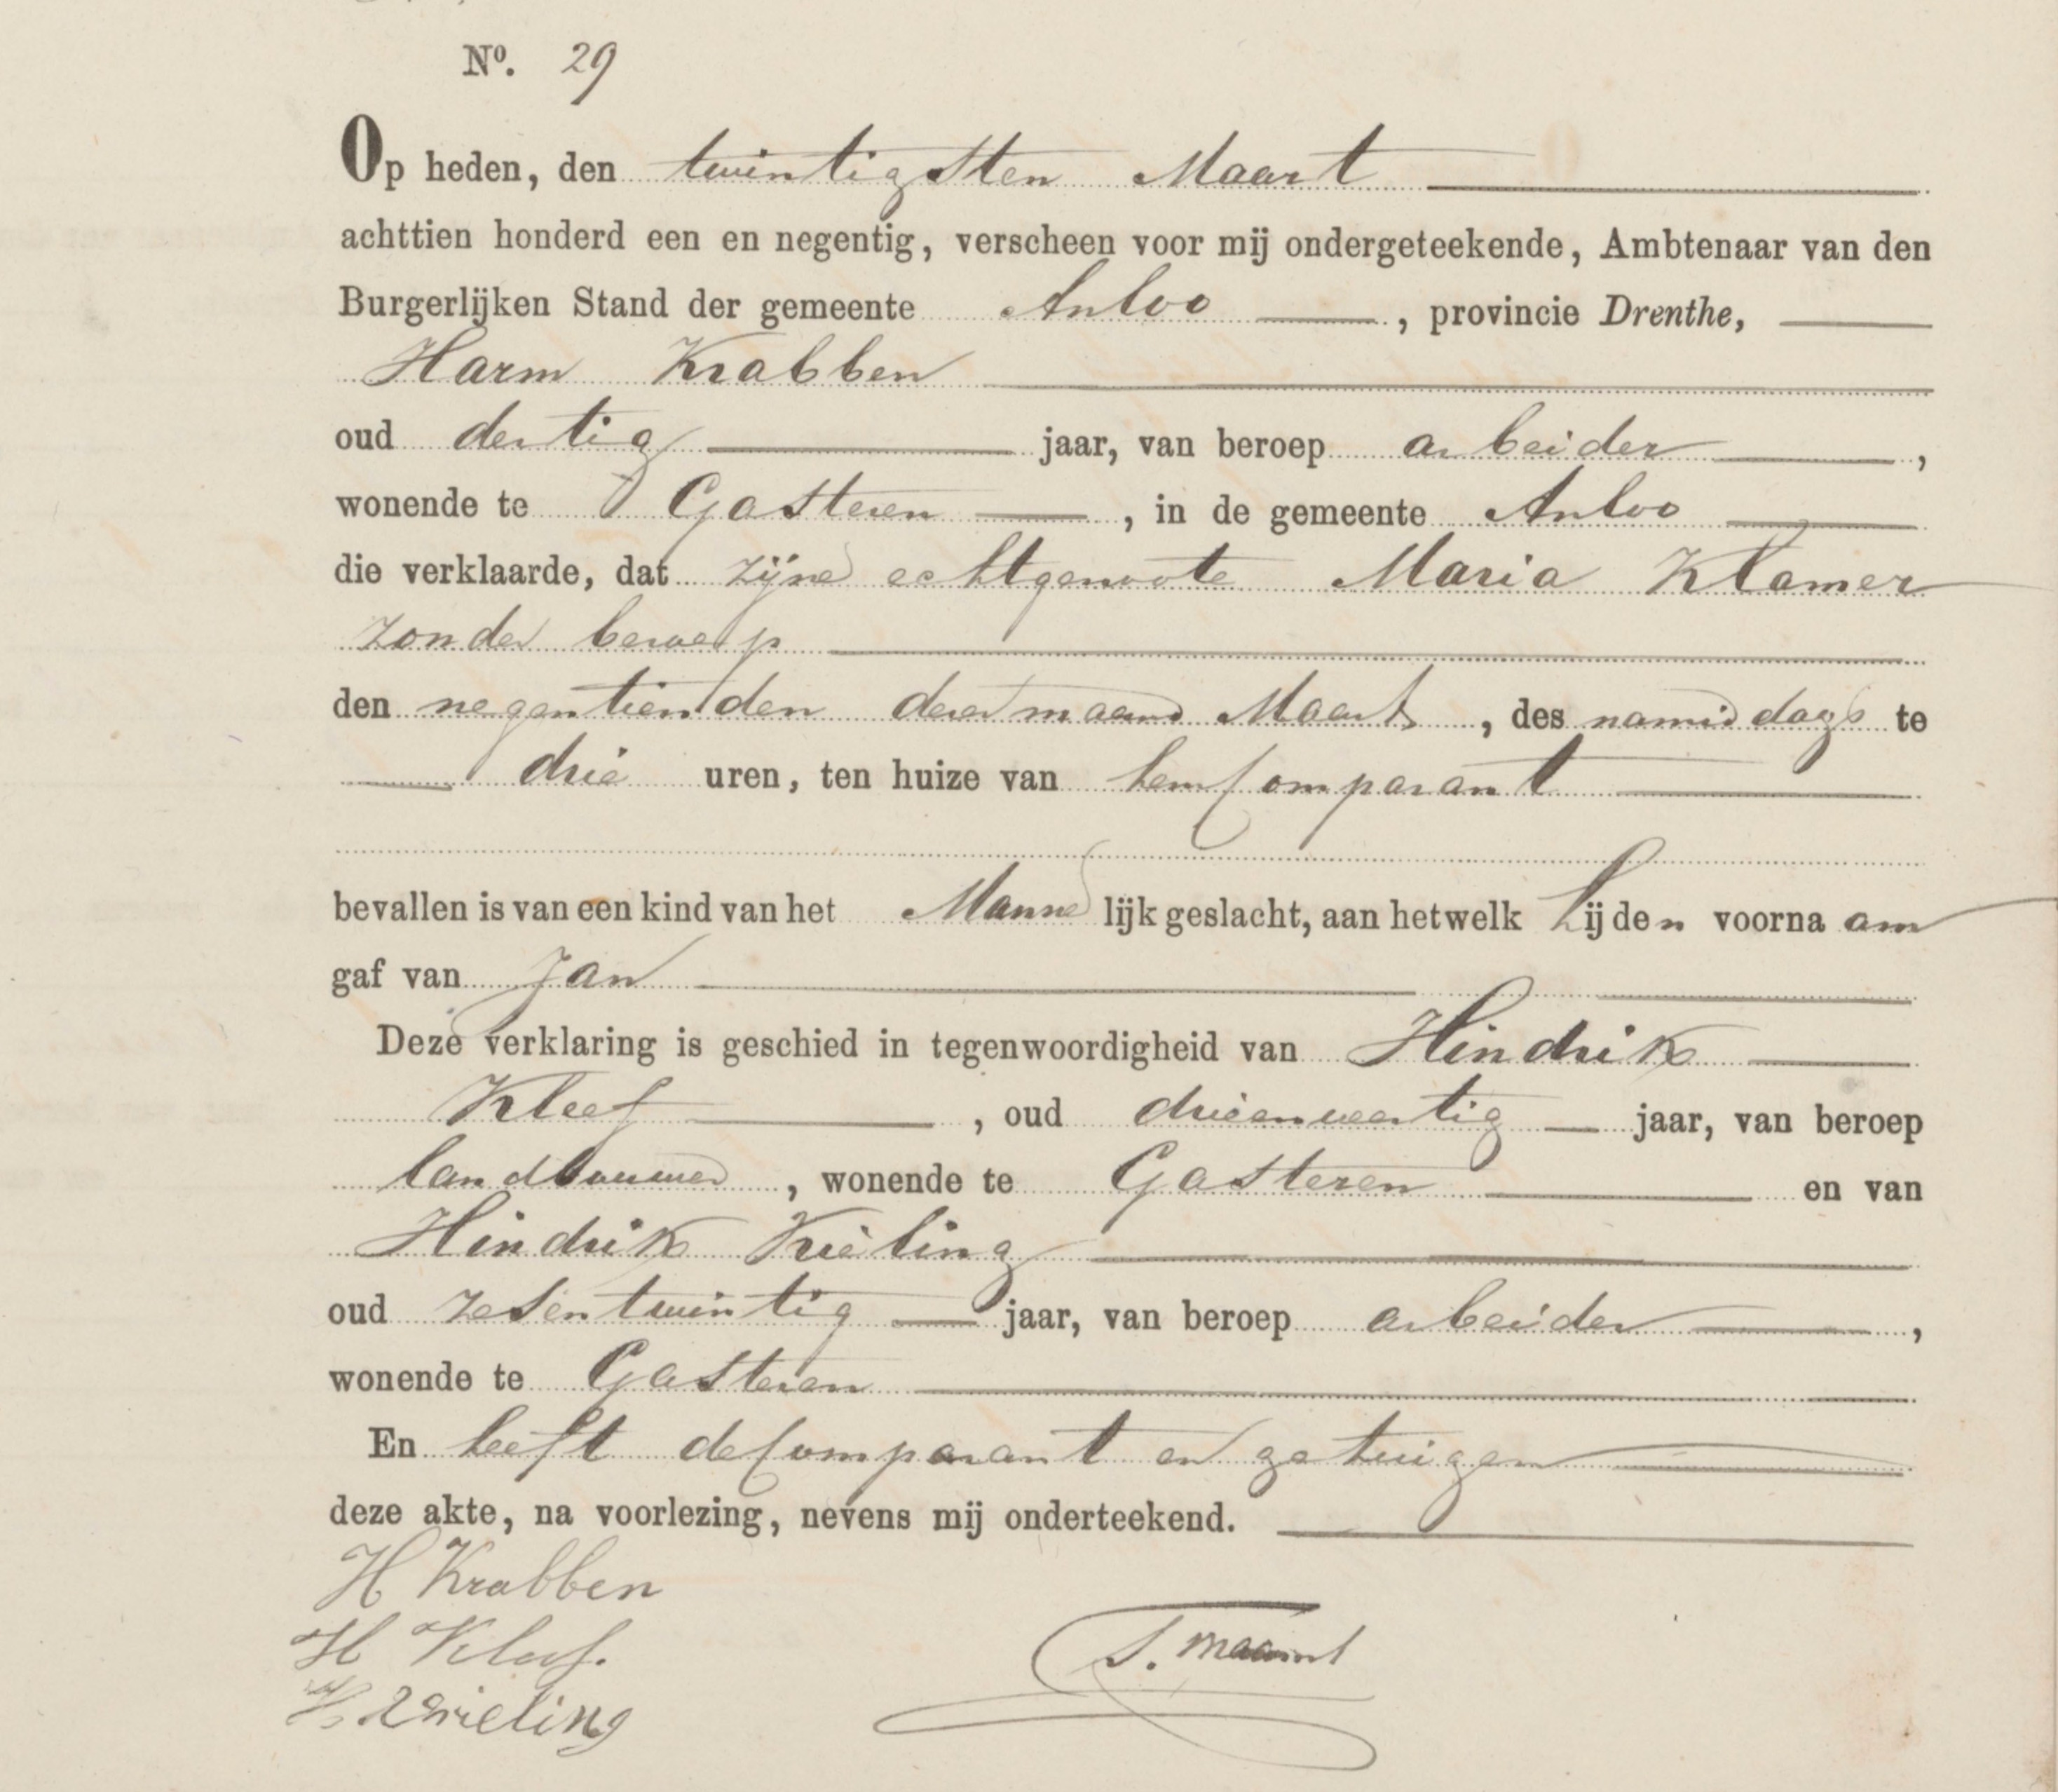 Nº. 29
Op heden, den twintigsten Maart
achttien honderd een en negentig, verscheen voor mij ondergeteekende, Ambtenaar van den
Burgerlijken Stand der gemeente Anloo, provincie Drenthe,
Harm Krabben
oud dertig jaar, van beroep arbeider,
wonende te Gasteren, in de gemeente Anloo
die verklaarde, dat zijne echtgenoote Maria Klamer
zonder beroep
den negentienden dezer maand Maart, des namiddags te
drie uren, ten huize van hem Comparant
bevallen is van een kind van het Mannelijk geslacht, aan hetwelk hij den voornaam
gaf van Jan
Deze verklaring is geschied in tegenwoordigheid van Hindrik
Kleef, oud drieenveertig jaar, van beroep
landbouwer, wonende te Gasteren en van
Hindrik Krieling
oud zesentwintig jaar, van beroep arbeider,
wonende te Gasteren
En heeft de Comparant en getuigen
deze akte, na voorlezing, nevens mij onderteekend.
H Krabben
H Kleef.
H. Krieling